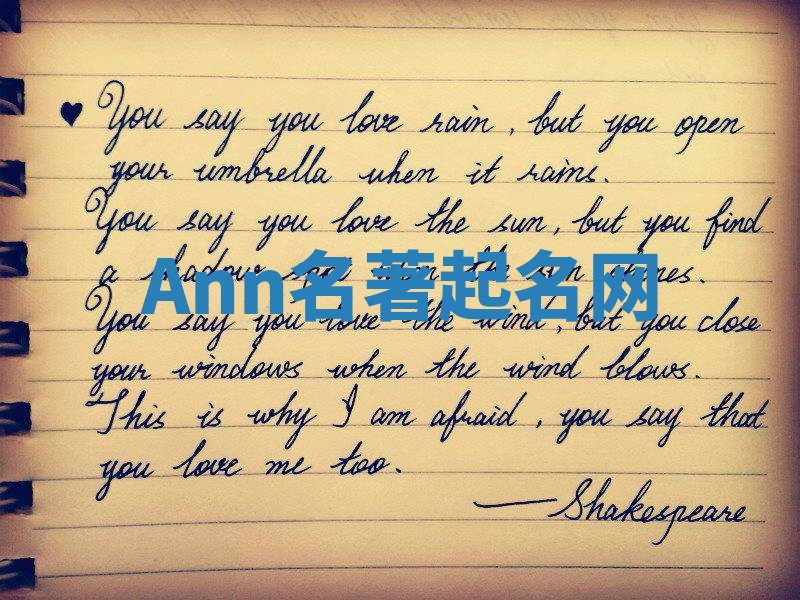 ♥ You say you love rain, but you open
your umbrella when it rains.
You say you love the sun, but you find
a shadow spot when the sun shines.
Ann名著起名网
You say you love the wind, but you close
your windows when the wind blows.
This is why I am afraid, you say that
you love me too.
—Shakespeare